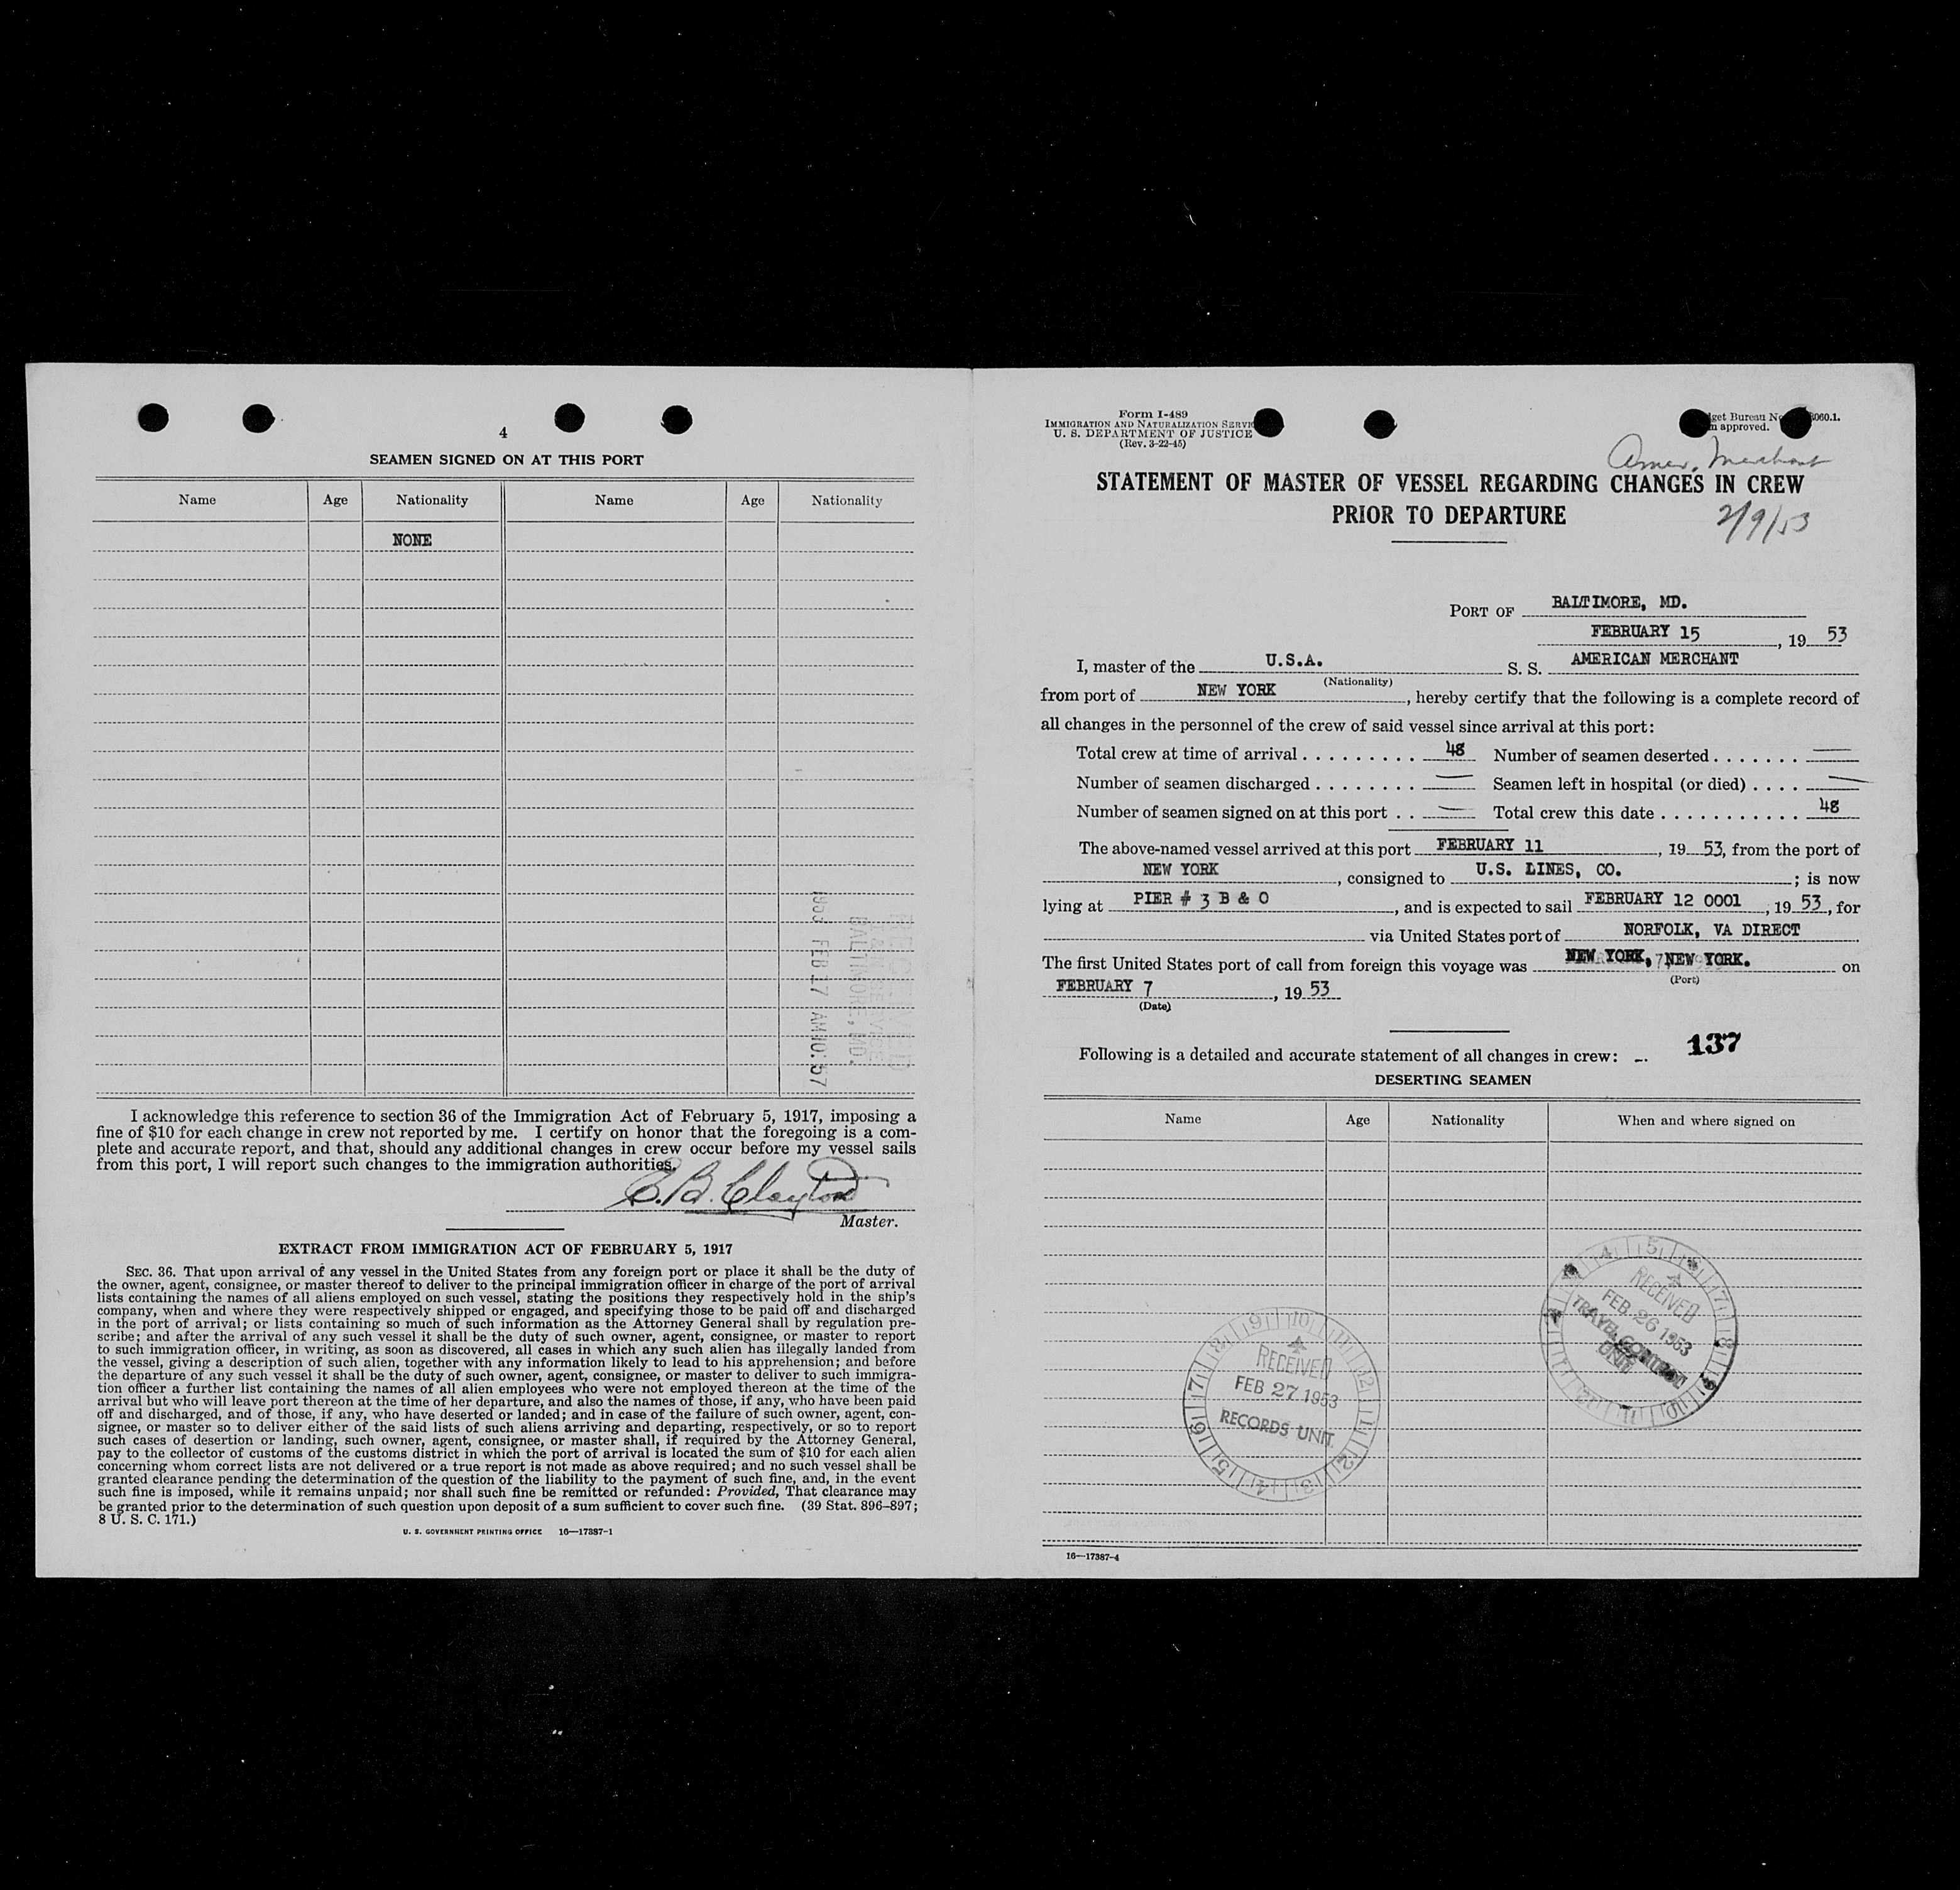 4
SEAMEN SIGNED ON AT THIS PORT
Name Age Nationality Name Age Nationality
NONE
1953 FEB 17 AM 10:57
BALTIMORE, MD.
I acknowledge this reference to section 36 of the Immigration Act of February 5, 1917, imposing a
fine of $10 for each change in crew not reported by me. I certify on honor that the foregoing is a com-
plete and accurate report, and that, should any additional changes in crew occur before my vessel sails
from this port, I will report such changes to the immigration authorities.
E. B. Clayton
Master.
EXTRACT FROM IMMIGRATION ACT OF FEBRUARY 5, 1917
SEC. 36. That upon arrival of any vessel in the United States from any foreign port or place it shall be the duty of
the owner, agent, consignee, or master thereof to deliver to the principal immigration officer in charge of the port of arrival
lists containing the names of all aliens employed on such vessel, stating the positions they respectively hold in the ship's
company, when and where they were respectively shipped or engaged, and specifying those to be paid off and discharged
in the port of arrival; or lists containing so much of such information as the Attorney General shall by regulation pre-
scribe; and after the arrival of any such vessel it shall be the duty of such owner, agent, consignee, or master to report
to such immigration officer, in writing, as soon as discovered, all cases in which any such alien has illegally landed from
the vessel, giving a description of such alien, together with any information likely to lead to his apprehension; and before
the departure of any such vessel it shall be the duty of such owner, agent, consignee, or master to deliver to such immigra-
tion officer a further list containing the names of all alien employees who were not employed thereon at the time of the
arrival but who will leave port thereon at the time of her departure, and also the names of those, if any, who have been paid
off and discharged, and of those, if any, who have deserted or landed; and in case of the failure of such owner, agent, con-
signee, or master so to deliver either of the said lists of such aliens arriving and departing, respectively, or so to report
such cases of desertion or landing, such owner, agent, consignee, or master shall, if required by the Attorney General,
pay to the collector of customs of the customs district in which the port of arrival is located the sum of $10 for each alien
concerning whom correct lists are not delivered or a true report is not made as above required; and no such vessel shall be
granted clearance pending the determination of the question of the liability to the payment of such fine, and, in the event
such fine is imposed, while it remains unpaid; nor shall such fine be remitted or refunded: Provided, That clearance may
be granted prior to the determination of such question upon deposit of a sum sufficient to cover such fine. (39 Stat. 896–897;
8 U. S. C. 171.)
U. S. GOVERNMENT PRINTING OFFICE 16—17387-1
Form I-489
IMMIGRATION AND NATURALIZATION SERVIC
U. S. DEPARTMENT OF JUSTICE
(Rev. 3-22-45)
get Bureau N 060.1.
approved.
Amer. Merchant
STATEMENT OF MASTER OF VESSEL REGARDING CHANGES IN CREW
PRIOR TO DEPARTURE
2/9/53
PORT OF BALTIMORE, MD.
FEBRUARY 15, 19 53
I, master of the U.S.A. S. S. AMERICAN MERCHANT
(Nationality)
from port of NEW YORK, hereby certify that the following is a complete record of
all changes in the personnel of the crew of said vessel since arrival at this port:
Total crew at time of arrival . . . . . . . . . 48 Number of seamen deserted . . . . . . . —
Number of seamen discharged . . . . . . . . — Seamen left in hospital (or died) . . . . —
Number of seamen signed on at this port . . — Total crew this date . . . . . . . . . . . 48
The above-named vessel arrived at this port FEBRUARY 11, 19 53, from the port of
NEW YORK, consigned to U.S. LINES, CO.; is now
lying at PIER # 3 B & O, and is expected to sail FEBRUARY 12 0001, 19 53, for
via United States port of NORFOLK, VA DIRECT
The first United States port of call from foreign this voyage was NEW YORK, NEW YORK. on
(Port)
FEBRUARY 7, 19 53
(Date)
Following is a detailed and accurate statement of all changes in crew: 137
DESERTING SEAMEN
Name Age Nationality When and where signed on
RECEIVED
FEB 26 1953
TRAVEL CONTROL
UNIT
RECEIVED
FEB 27 1953
RECORDS UNIT
16—17387-4